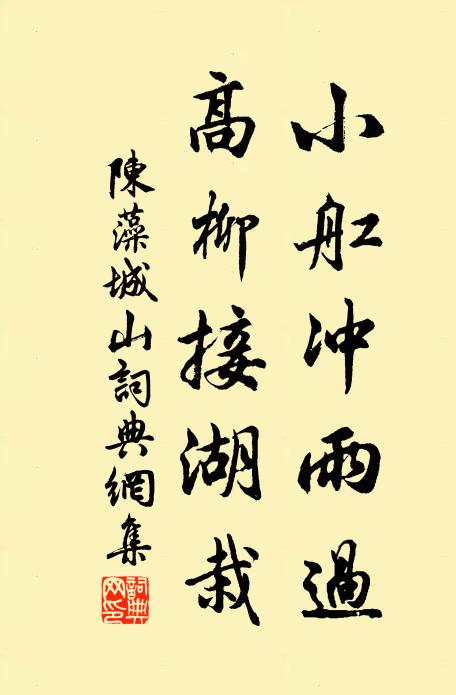 小舡冲雨過
高柳接湖栽
陳藻城山詞典網集
詞典
网印